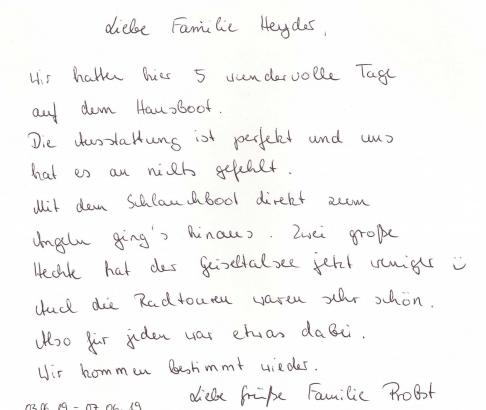 Liebe Familie Heyder,
Wir hatten hier 5 wundervolle Tage
auf dem Hausboot.
Die Ausstattung ist perfekt und uns
hat es an nichts gefehlt.
Mit dem Schlauchboot direkt zum
Angeln ging's hinaus. Zwei große
Hechte hat der Geiseltalsee jetzt weniger ü
Auch die Radtouren waren sehr schön.
Also für jeden war etwas dabei.
Wir kommen bestimmt wieder.
Liebe Grüße Familie Probst
03.06.19 - 07.06.19